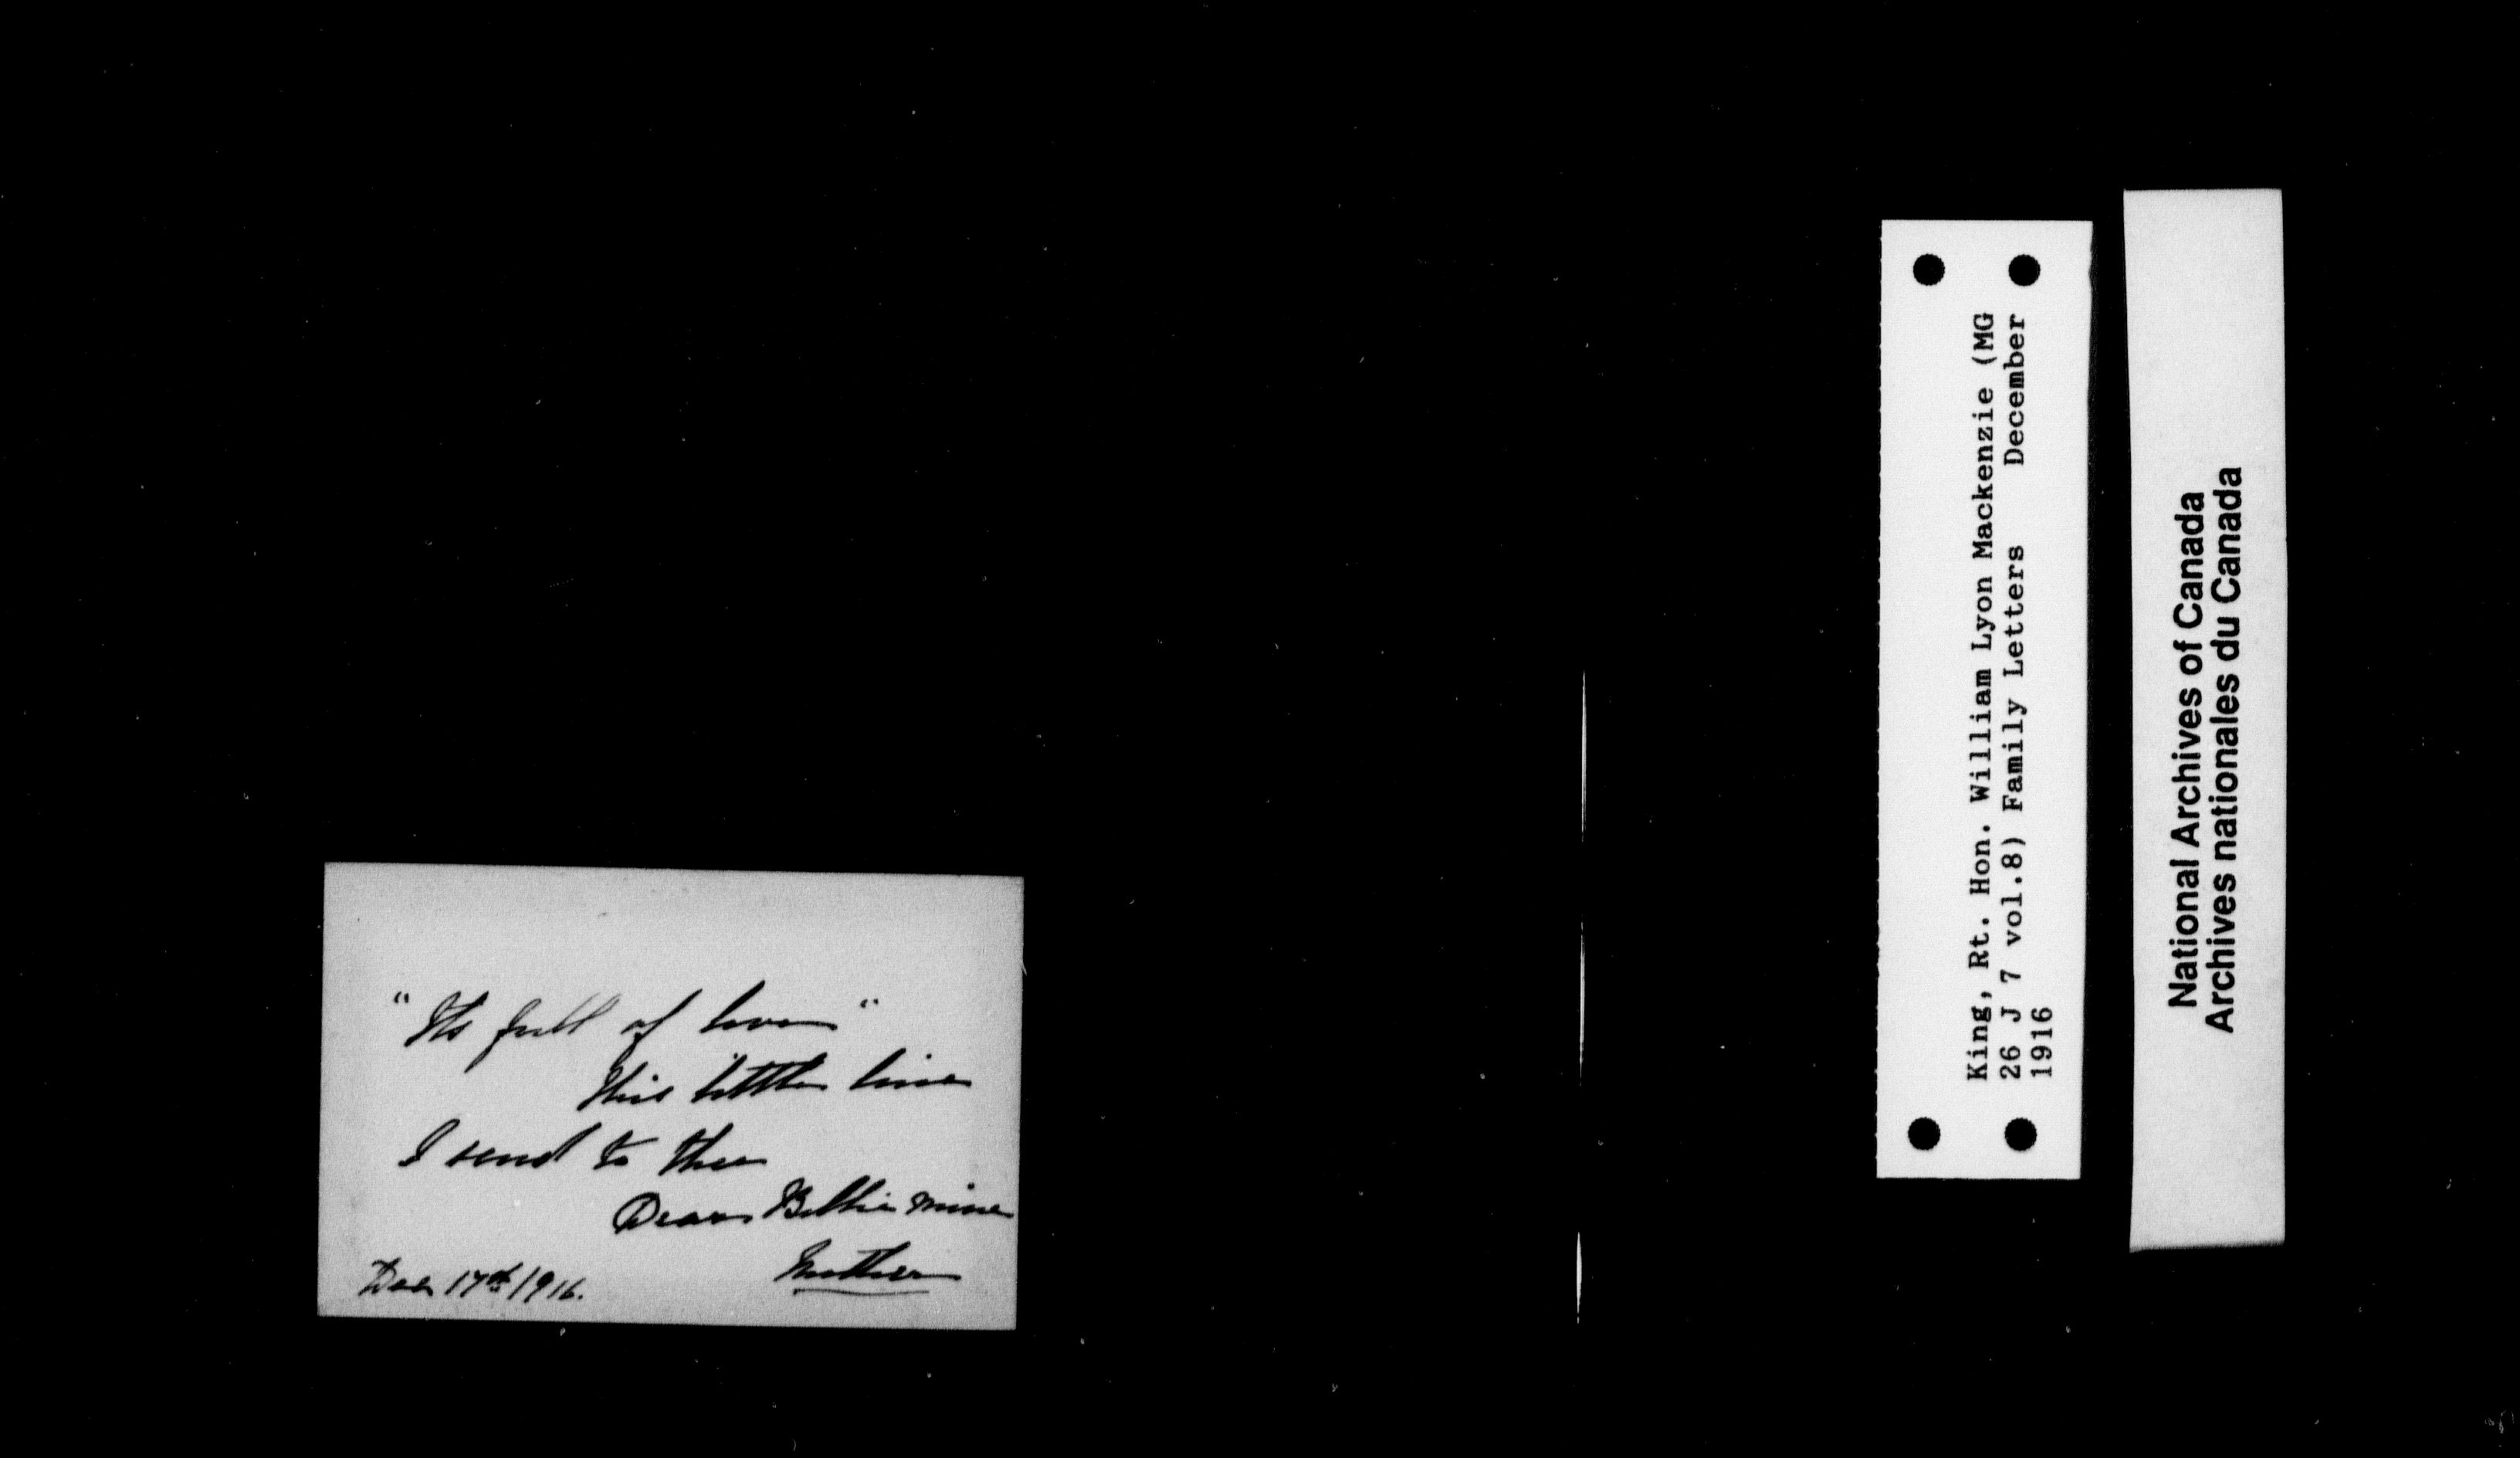 "Its full of love"
This little line
I send to thee
Dear Billie mine
Mother
Dec 17th/1916.
King, Rt. Hon. William Lyon Mackenzie (MG
26 J 7 vol.8) Family Letters December
1916
National Archives of Canada
Archives nationales du Canada